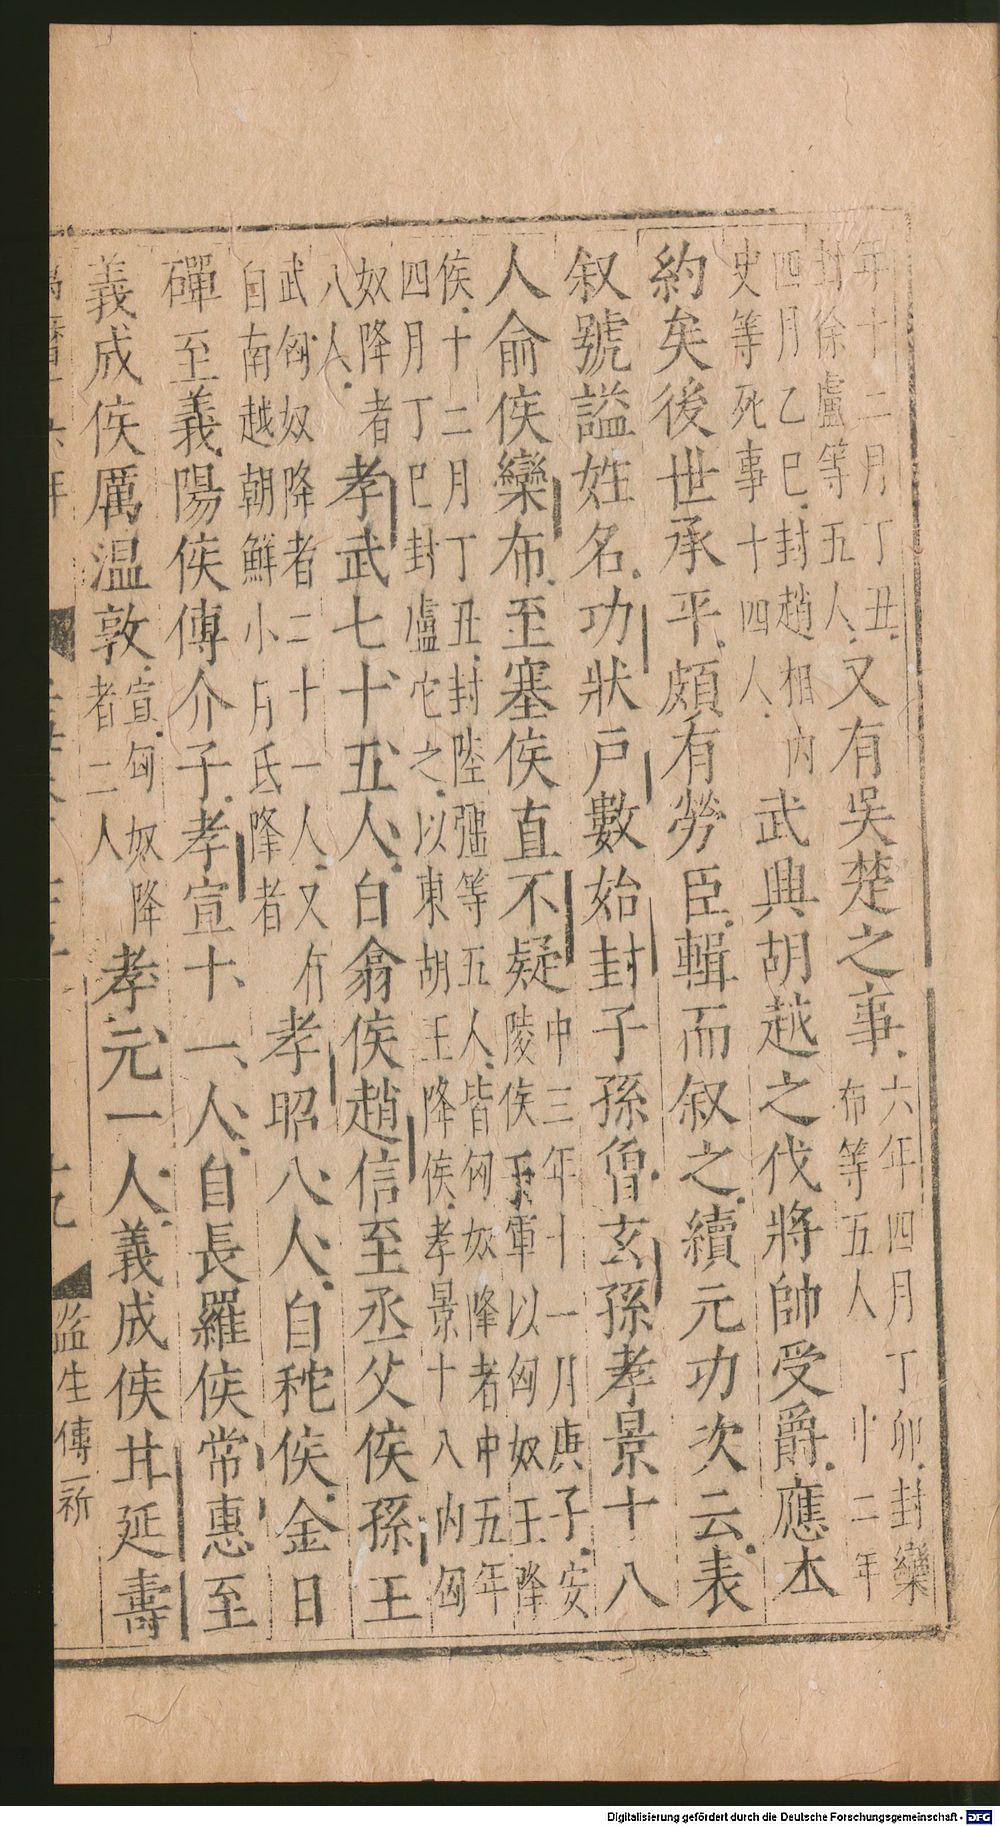 年十二月丁丑封徐盧等五人又有吳楚之事六年四月丁卯封欒布等五人中二年
四月乙巳封趙相內史等死事十四人武興胡越之伐將帥受爵應本
約矣後世承平頗有勞臣輯而叙之續元功次云表
叙號謚姓名功狀戶數始封子孫曾玄孫孝景十八
人俞侯欒布至塞侯直不疑中三年十一月庚子安陵侯于軍以匈奴王降
侯十二月丁丑封陸彊等五人皆匈奴降者中五年四月丁巳封盧它之以東胡王降侯孝景十八內匈
奴降者八人孝武七十五人自翕侯趙信至丞父侯孫王
武匈奴降者二十一人又有自南越朝鮮小月氏降者孝昭八人自秺侯金日
磾至義陽侯傅介子孝宣十一人自長羅侯常惠至
義成侯厲温敦宣匈奴降者二人孝元一人義成侯甘延壽
監生傅一祈
Digitalisierung gefördert durch die Deutsche Forschungsgemeinschaft - DFG